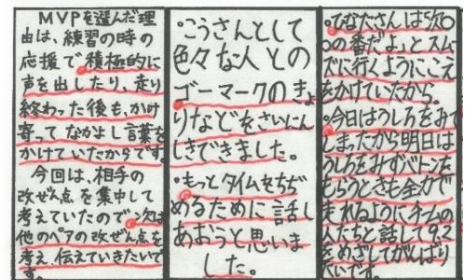 MVPを選んだ理
由は、練習の時の
応援で積極的に
声を出したり、走り
終わった後も、かけ
寄ってなかよし言葉を
かけていたからです。
今回は、相手の
改ぜん点を集中して
考えていたので次は
他のペアの改ぜん点を
考え、伝えていきたいで
す。
・こうさんとして
色々な人との
ゴーマークのきょ
りなどをさいにん
しきできました。
・もっとタイムをちぢ
めるために話し
あおうと思いま
した。
・ひなたさんは「次〇
〇の番だよ」とスム
ーズに行くようにこえ
をかけていたから。
・今日はうしろをみて
しまったから明日は
うしろをみずバトンを
もらうときも全力で
走れるようにチームの
人たちと話して92
をめざしてがんばり
たいです。